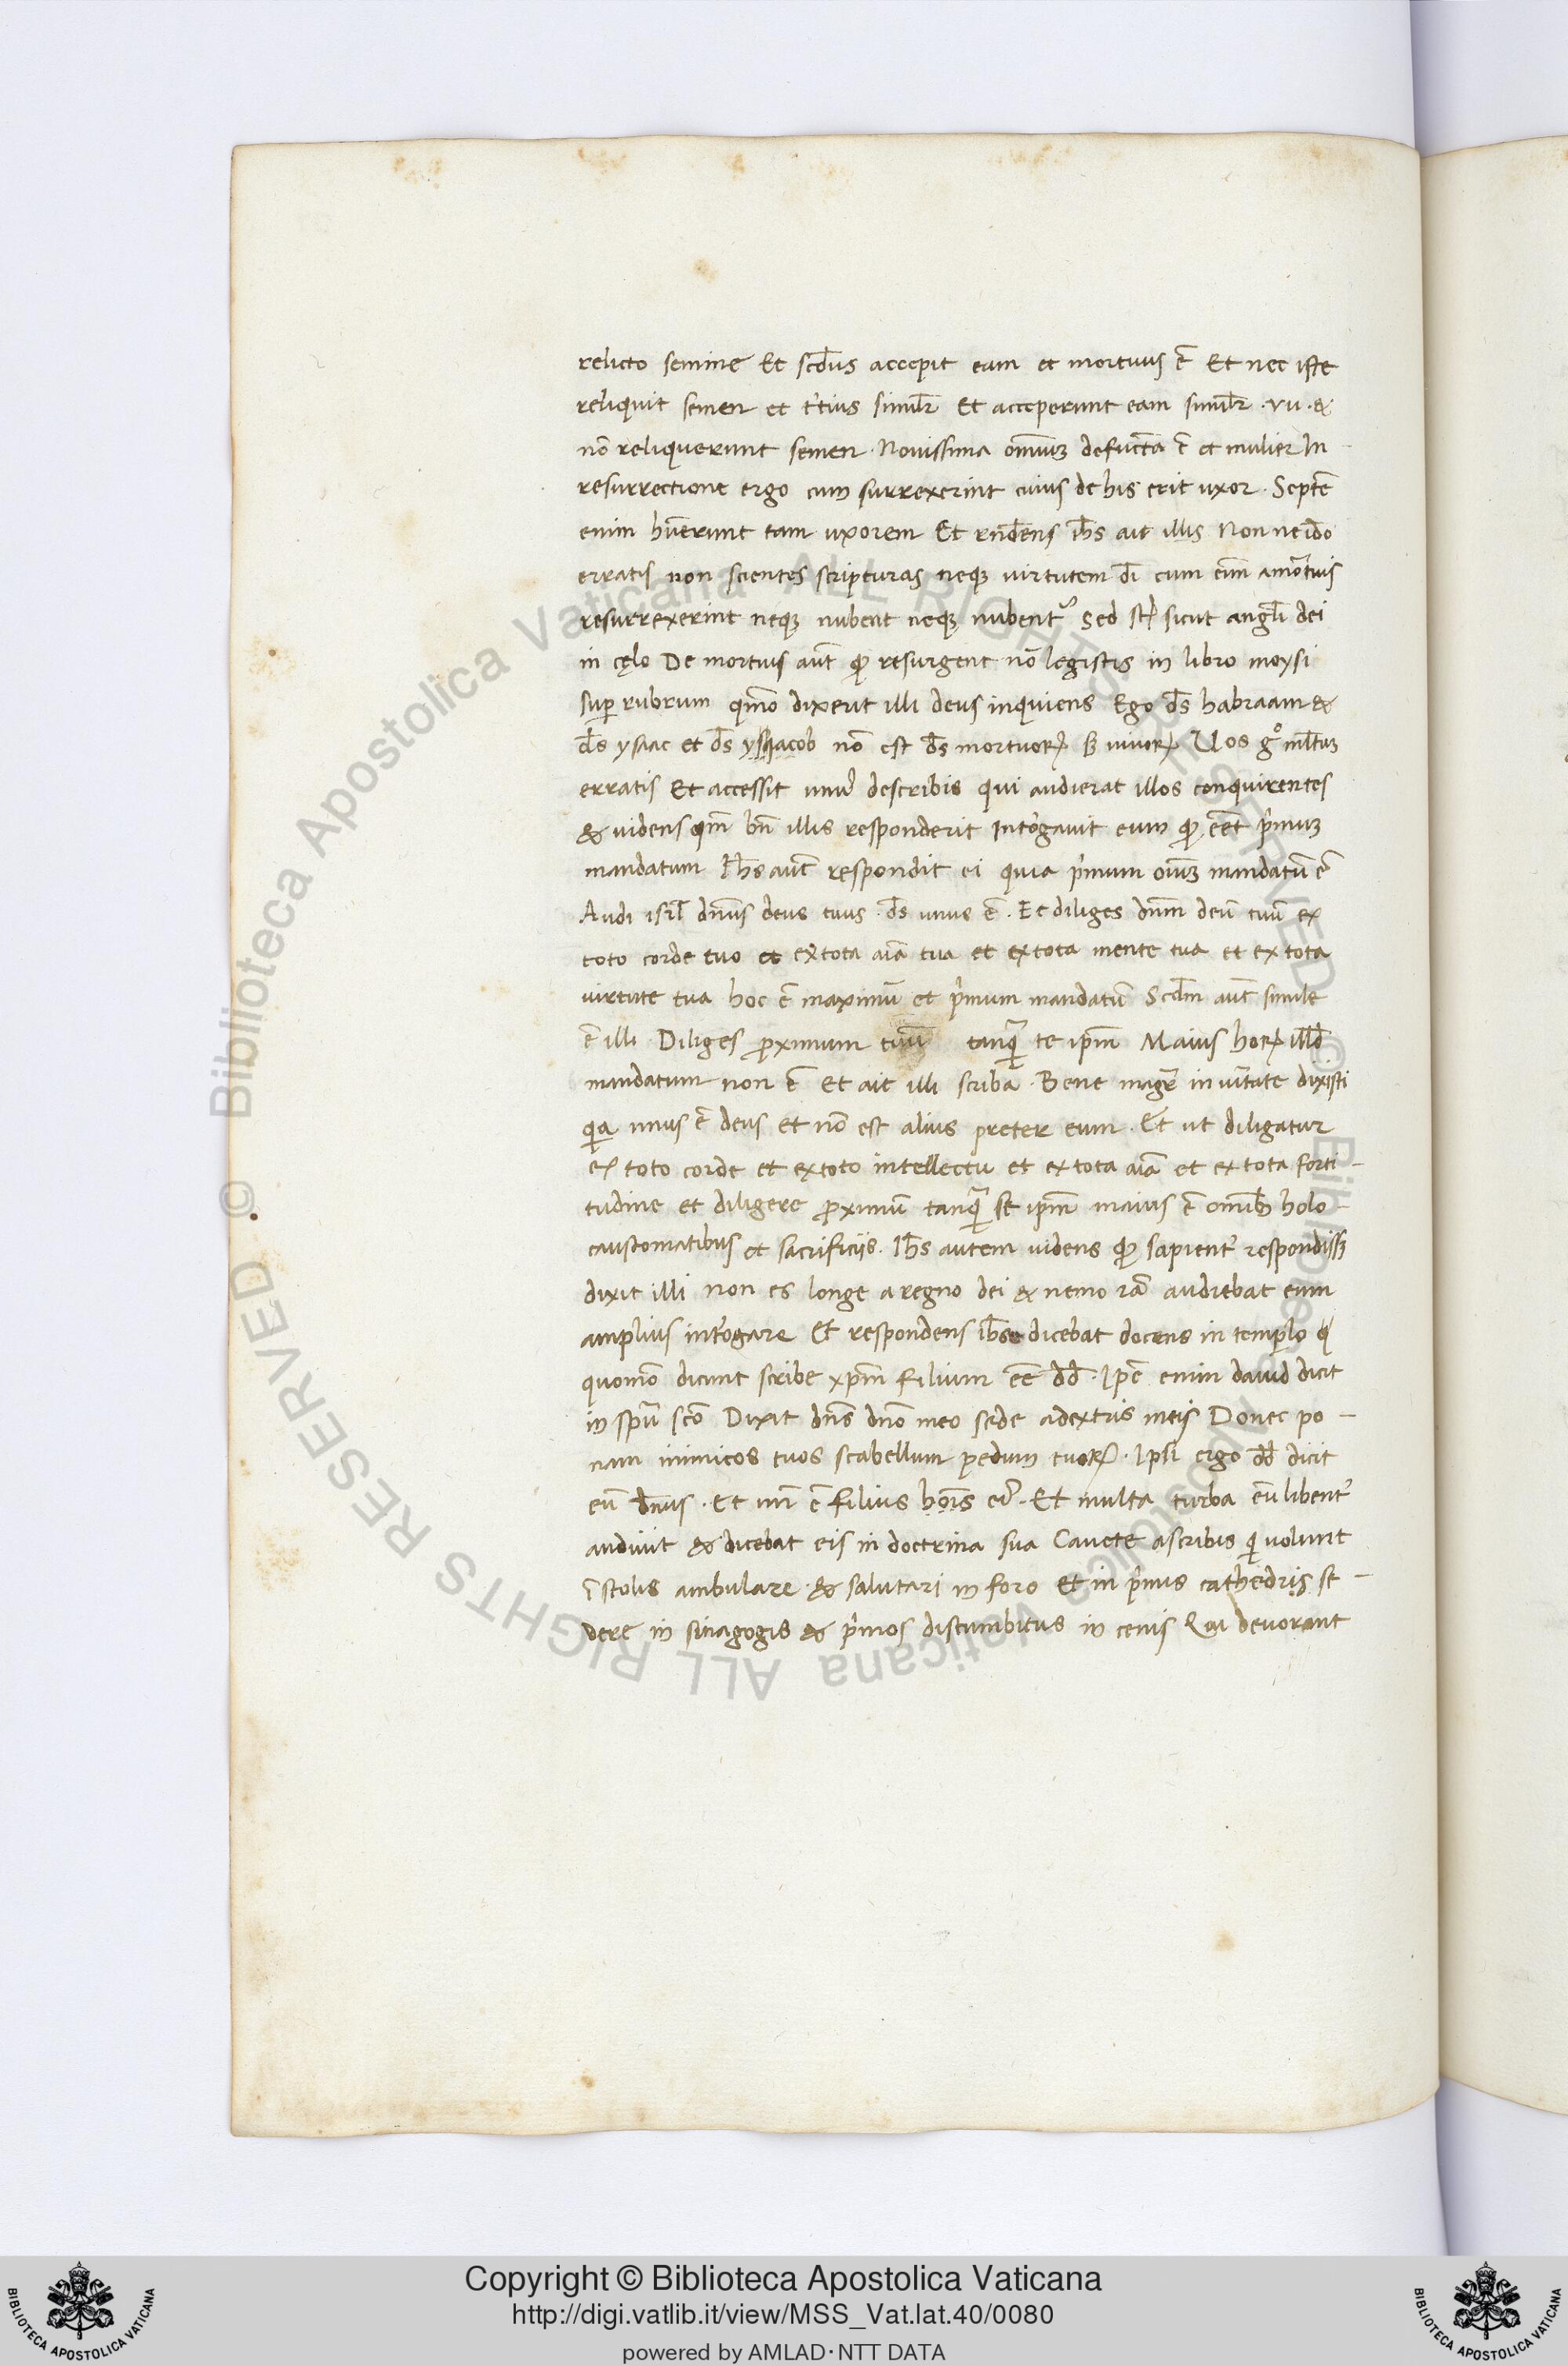 relicto semine Et scd̄us accepit eam et mortuus ē Et nec iste
reliquit semen et t'tius simil'r Et acceperunt eam simil'r .vii. &
nō reliquerunt semen. Nouissima omīuȝ defūcta ē et mulier In
resurrectione ergo cum surrexerint cuius de his erit uxor. Septē
enim hūerunt eam uxorem Et rnd̄ens ih̄s ait illis Non ne iđo
erratis non scientes scripturas neqȝ uirtutem dī cum eīm a mortuis
resurrexerint neqȝ nubent neqȝ nubent᷑ Sed st̄ sicut angl̄i dei
in cęlo De mortuis aūt qđ resurgent nō legistis in libro moysi
suꝑ rubrum qūo dixerit illi deus inquiens Ego đs habraam &
đs ysaac et đs iacob nō est đs mortuoꝝ sȝ uiuoꝝ Uos gͦ ml̄tuȝ
erratis Et accessit unuˀ de scribis qui audierat illos conquirentes
& uidens qm̄ bn̄ illis responderit Int'ogauit eum qđ eēt p'muȝ
mandatum Ih̄s aūt respondit ei quia p'mum oīuȝ mandatū ē
Audi isrl̄ dn̄us deus tuus . đs unus ē. Et diliges dn̄m deū tuū ex
toto corde tuo et ex tota aīa tua et ex tota mente tua et ex tota
uirtute tua hoc ē maximū et p'mum mandatū Scđm aūt simile
ē illi Diliges ꝓximum tuū tanqᷓ te ip̄m Maius hoꝝ illđ
mandatum non ē Et ait illi scriba . Bene mag'r in u'itate dixisti
qia unus ē deus et nō est alius preter eum. Et ut diligatur
ex toto corde et ex toto intellectu et ex tota aīa et ex tota forti-
tudine et diligere ꝓximū tanqᷓ se ip̄m maius ē omībȝ holo-
caustomatibus et sacrificiis. Ih̄s autem uidens qđ sapient' respondissȝ
dixit illi non es longe a regno dei & nemo iā audiebat eum
amplius int'ogare Et respondens ih̄s dicebat docens in templo
quomō dicunt scribe xp̄m filium eē dđ. Ip̄e enim dauid dicit
in sp̄u scō Dixit dn̄s dn̄o meo sede a dextris meis Donec po-
nam inimicos tuos scabellum pedum tuoꝝ. Ipsi ergo dđ dicit
eū dn̄us. Et un̄ ē filius hoīs eiˀ. Et multa turba eū libent'
audiuit & dicebat eis in doctrina sua Cauete a scribis qi uolunt
ī stolis ambulare & salutari in foro Et in p'mis cathedris se-
dere in sinagogis & p'mos discumbitus in cenis Qui deuorant
Copyright © Biblioteca Apostolica Vaticana
http://digi.vatlib.it/view/MSS_Vat.lat.40/0080
powered by AMLAD·NTT DATA